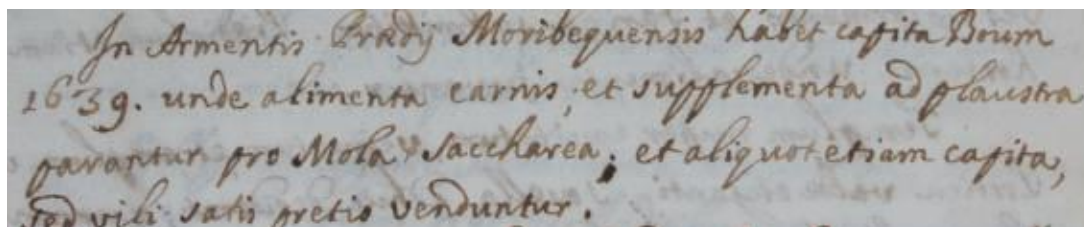 In Armentis Prædij Moribequensis habet capita Boum
1639. unde alimenta carnis, et supplementa ad plaustra
parantur pro Mola Saccharea; et aliquot etiam capita,
sed vili satis pretio venduntur.